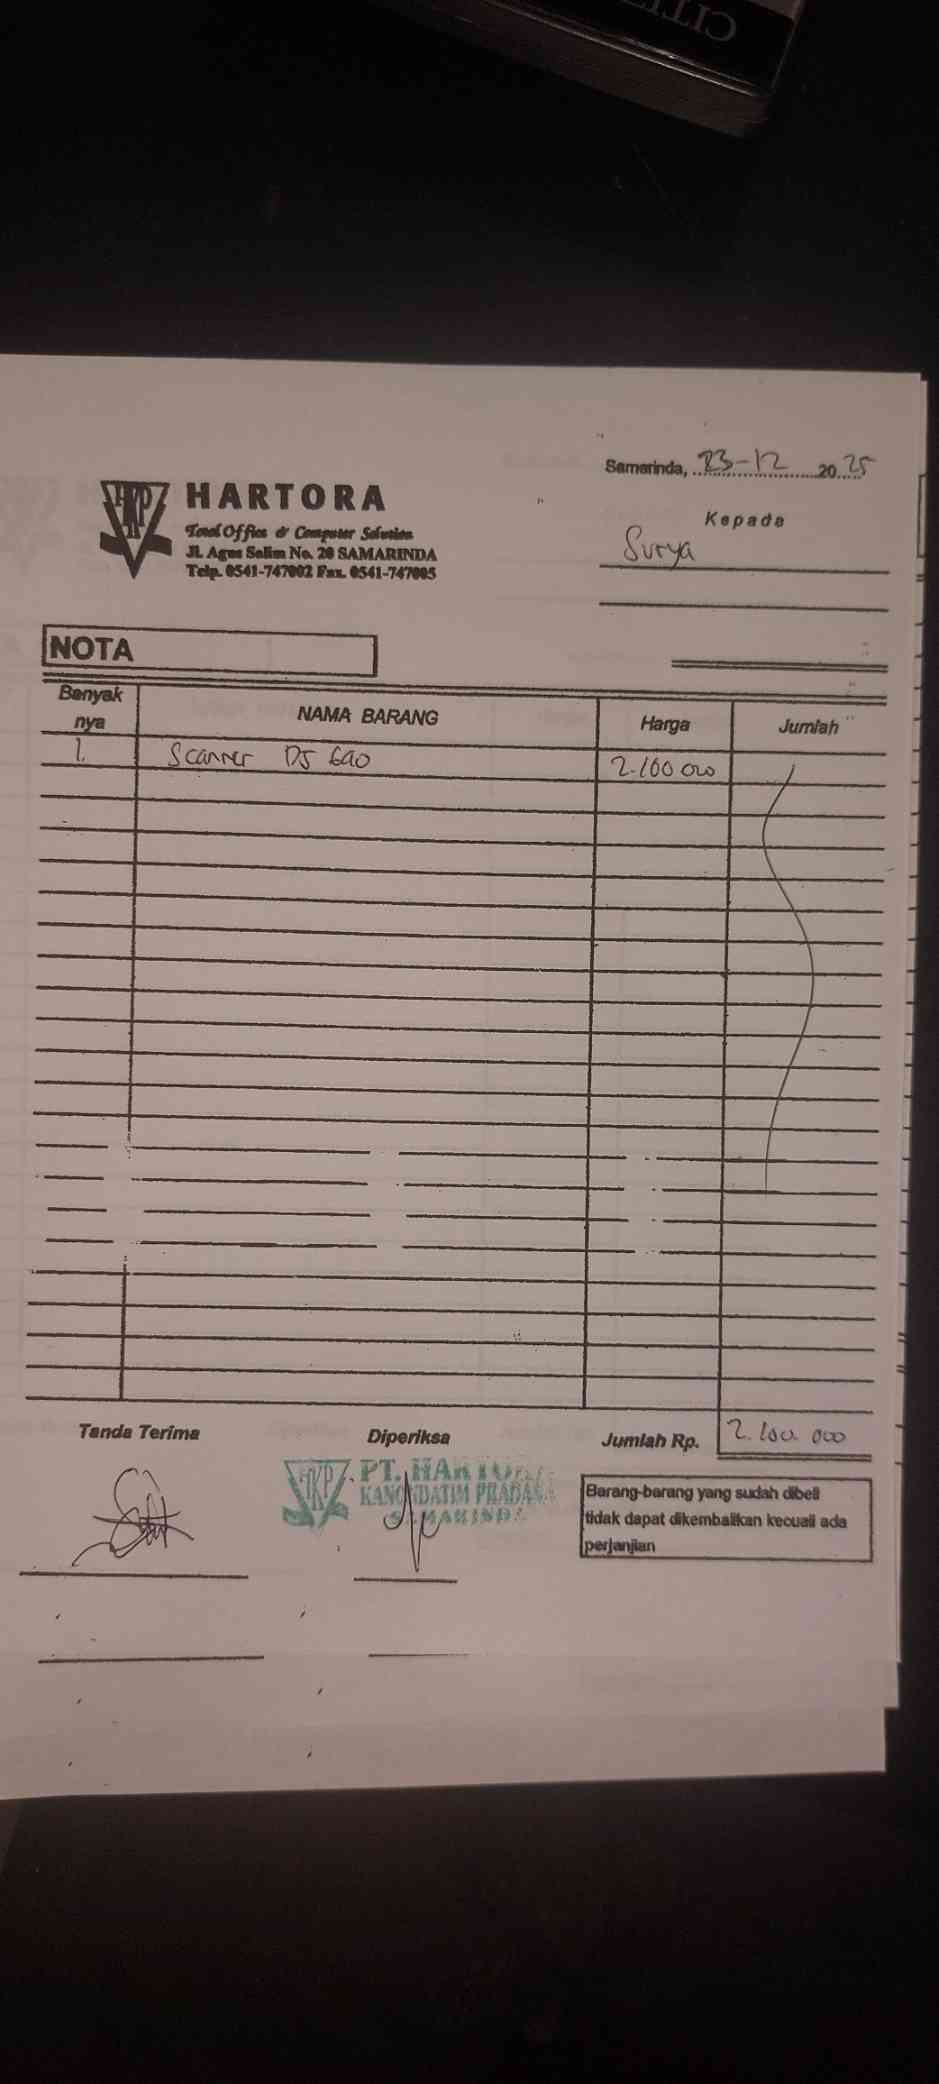 CITI
Samarinda, 23-12 20 25
HARTORA
Total Office & Computer Solution
Jl. Agus Salim No. 20 SAMARINDA
Telp. 0541-747002 Fax. 0541-747005
Kepada
Surya
NOTA
Banyak nya NAMA BARANG Harga Jumlah
1. Scanner DS 2.100 000
Tanda Terima Diperiksa Jumlah Rp. 2.100.000
PT. HARTORA
KANONDATIM PRADANA
SAMARINDA
Barang-barang yang sudah dibeli
tidak dapat dikembalikan kecuali ada
perjanjian